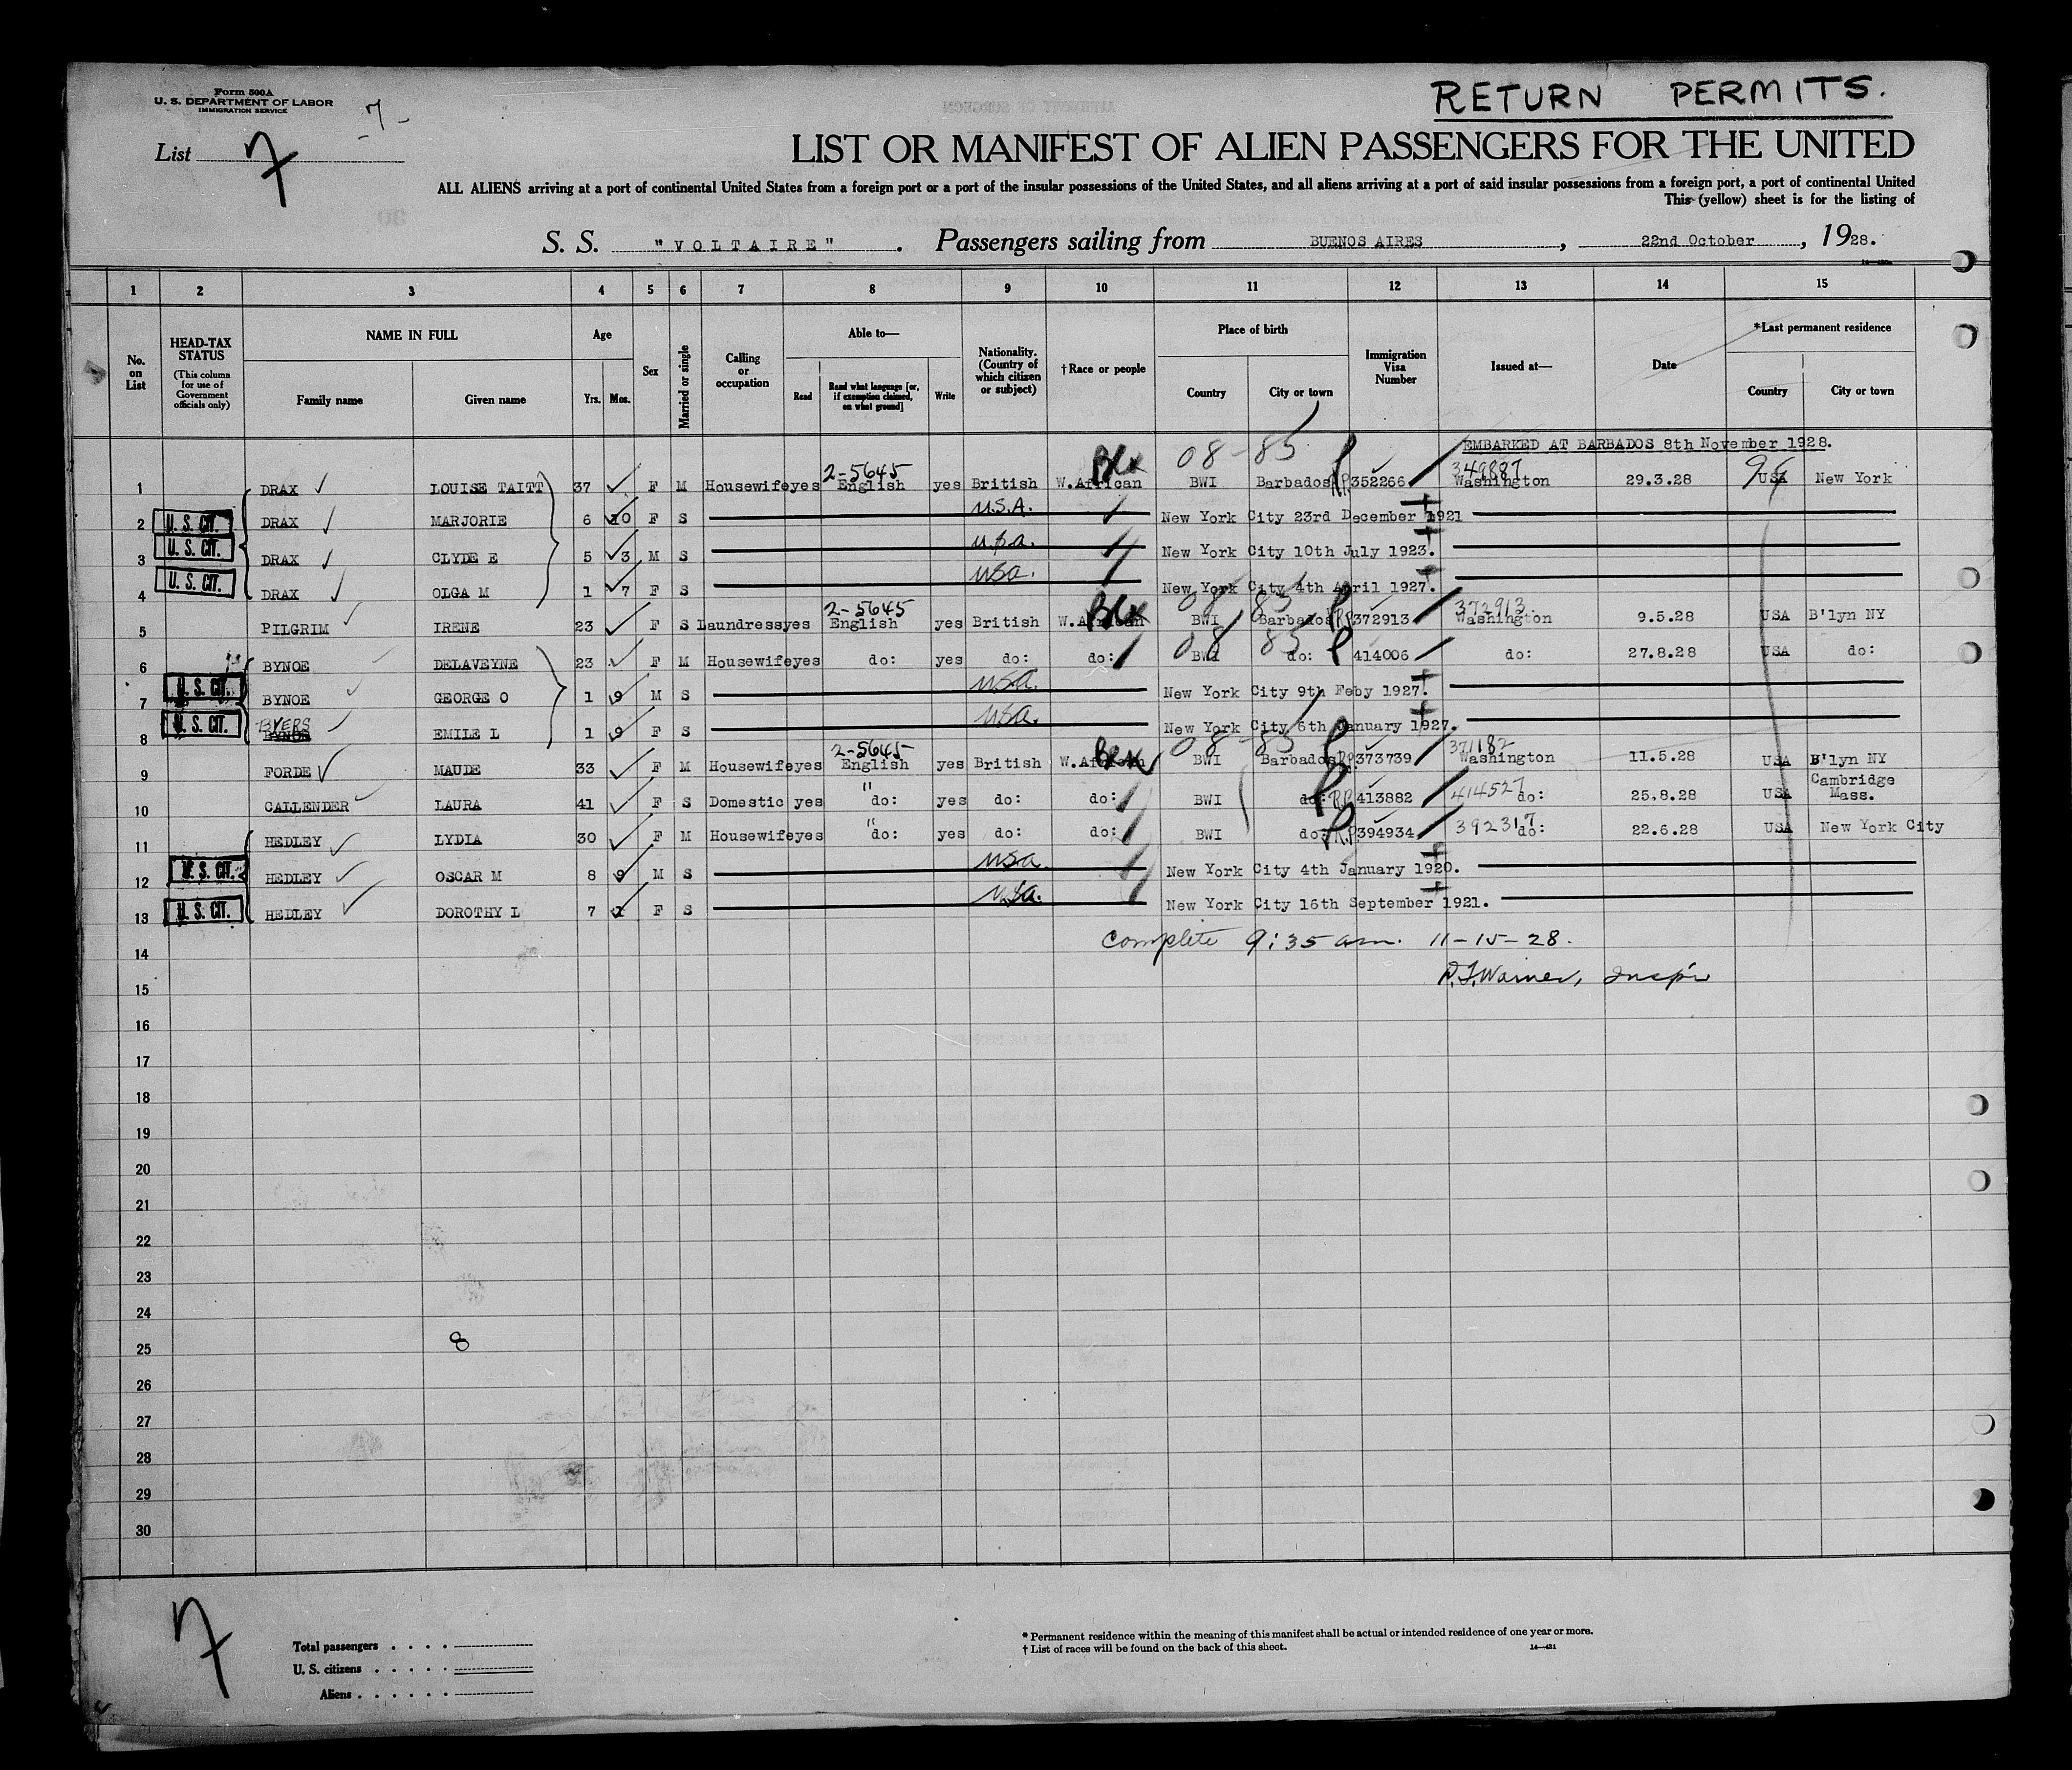 Form 500A
U. S. DEPARTMENT OF LABOR
IMMIGRATION SERVICE
-7-
RETURN PERMITS.
List 7
LIST OR MANIFEST OF ALIEN PASSENGERS FOR THE UNITED
ALL ALIENS arriving at a port of continental United States from a foreign port or a port of the insular possessions of the United States, and all aliens arriving at a port of said insular possessions from a foreign port, a port of continental United
This (yellow) sheet is for the listing of
S. S. "VOLTAIRE". Passengers sailing from BUENOS AIRES, 22nd October, 1928.
1 2 3 4 5 6 7 8 9 10 11 12 13 14 15
No. on List
HEAD-TAX STATUS (This column for use of Government officials only)
NAME IN FULL Family name Given name
Age Yrs. Mos.
Sex
Married or single
Calling or occupation
Able to— Read Read what language [or, if exemption claimed, on what ground] Write
Nationality. (Country of which citizen or subject)
†Race or people
Place of birth Country City or town
Immigration Visa Number
Issued at—
Date
*Last permanent residence Country City or town
EMBARKED AT BARBADOS 8th November 1928.
2-5645 Blk 08-85 349887 94
1 DRAX LOUISE TAITT 37 F M Housewife yes English yes British W.African BWI Barbados R.P. 352266 Washington 29.3.28 USA New York
2 U. S. CIT. DRAX MARJORIE 6 10 F S U.S.A. New York City 23rd December 1921
3 U. S. CIT. DRAX CLYDE E 5 3 M S New York City 10th July 1923.
4 U. S. CIT. DRAX OLGA M 1 7 F S USA. New York City 4th April 1927.
2-5645 Blk 08 85 372913
5 PILGRIM IRENE 23 F S Laundress yes English yes British W.African BWI Barbados R.P. 372913 Washington 9.5.28 USA B'lyn NY
08 85
6 BYNOE DELAVEYNE 23 F M Housewife yes do: yes do: do: BWI do: 414006 do: 27.8.28 USA do:
7 U. S. CIT. BYNOE GEORGE O 1 9 M S USA. New York City 9th Feby 1927.
BYERS
8 U. S. CIT. BYNOE EMILE L 1 9 F S USA. New York City 6th January 1927.
2-5645 Blk 08-85 371182
9 FORDE MAUDE 33 F M Housewife yes English yes British W.African BWI Barbados R.P. 373739 Washington 11.5.28 USA B'lyn NY
10 CALLENDER LAURA 41 F S Domestic yes " do: yes do: do: BWI do: R.P. 413882 414527 do: 25.8.28 USA Cambridge Mass.
11 HEDLEY LYDIA 30 F M Housewife yes " do: yes do: do: BWI do: R.P. 394934 392317 do: 22.6.28 USA New York City
12 U. S. CIT. HEDLEY OSCAR M 8 9 M S USA New York City 4th January 1920.
13 U. S. CIT. HEDLEY DOROTHY L 7 1 F S USA. New York City 16th September 1921.
Complete 9:35 am. 11-15-28.
14
Warner, Insp'r
15
16
17
18
19
20
21
22
23
24
8
25
26
27
28
29
30
7
Total passengers . . . .
U. S. citizens . . . . .
Aliens . . . . . .
* Permanent residence within the meaning of this manifest shall be actual or intended residence of one year or more.
† List of races will be found on the back of this sheet. 14—431